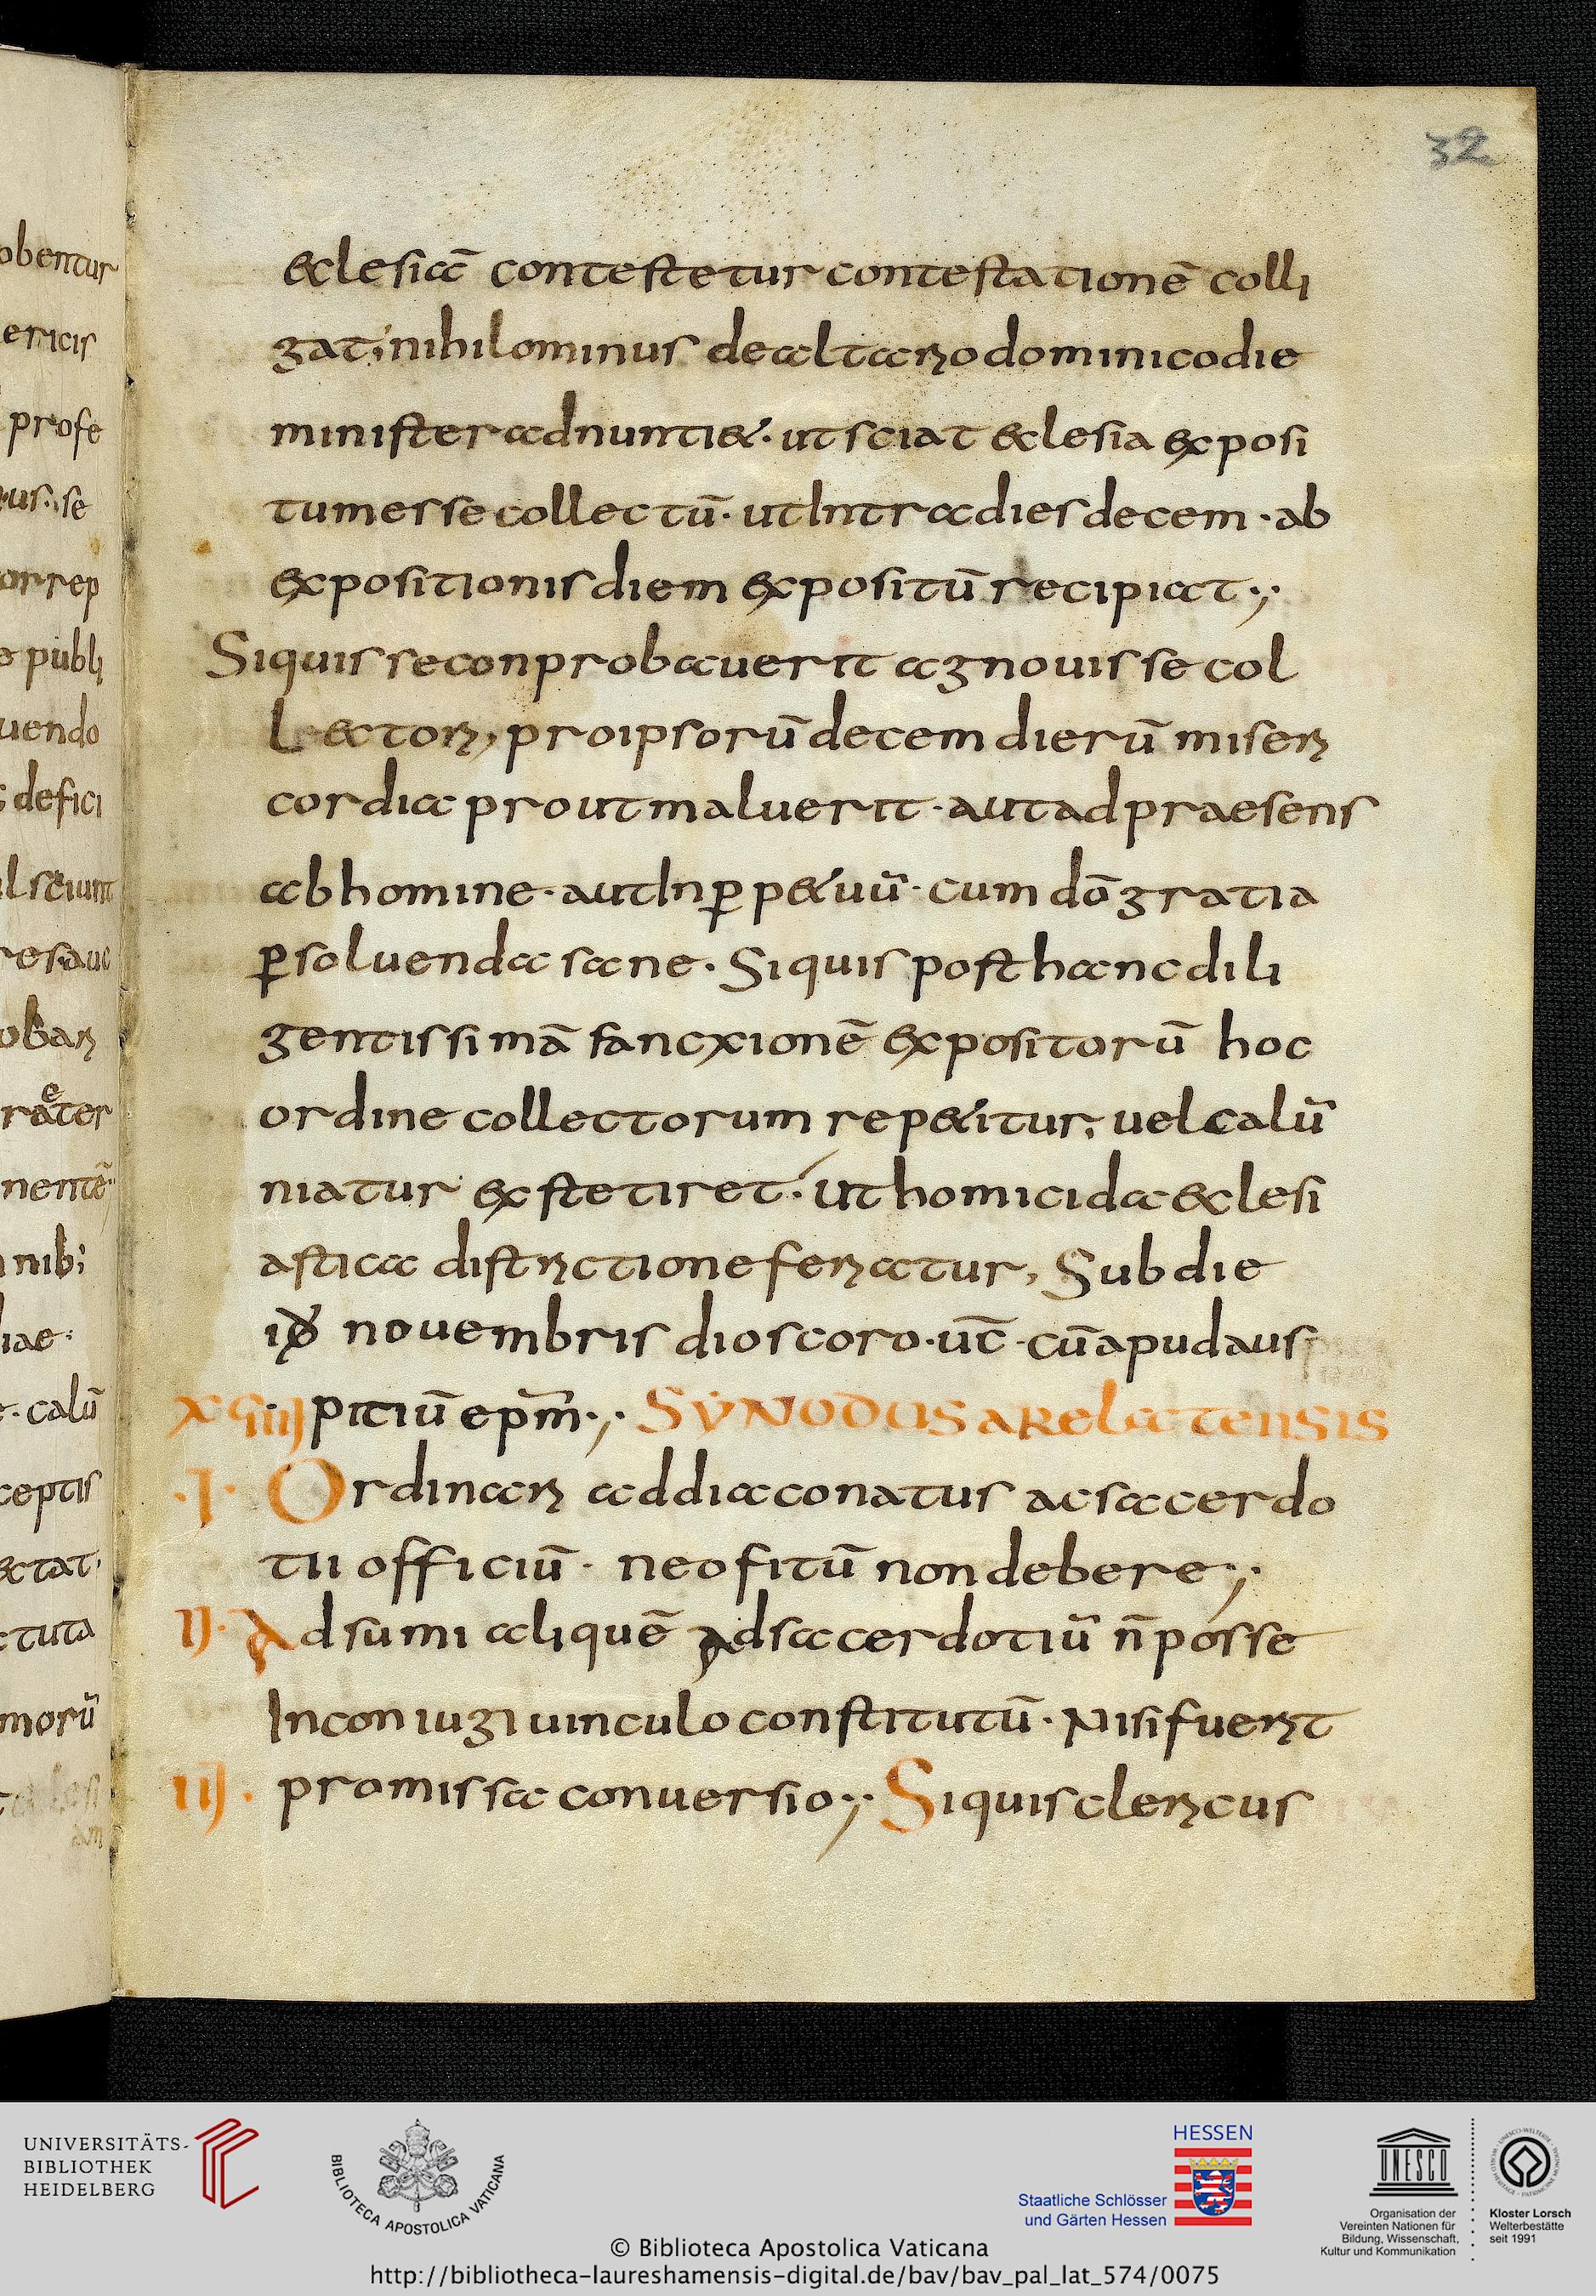 obentur
ericis
profe
us.,se
orrep
e publi
uendo
defici
lsciunt
res.auc
obari
rater
e
nentē
nib;
iae.
calū
ceptis
ectat.
ctuta
morū
32
eclesiā contestetur contestationē colli
gat; nihilominus de altario dominico die
minister adnuntiet. ut sciat eclesia exposi
tum esse collectū. ut intra dies decem. ab
expositionis diem expositū recipiat.,.
Si quis se conprobauerit agnouisse col
lectori, pro ipsorū decem dierū miseri
cordia prout maluerit. aut ad praesens
ab homine. aut in ꝑpetuū. cum dō gratia
ꝑsoluenda sane. Si quis post hanc dili
gentissimā sancxionē expositorū hoc
ordine collectorum repetitur, uel calū
niatur exstetiret. ut homicida eclesi
astica districtione feriatur, Sub die
id nouembris dioscoro. uc̄. cū apud aus
XLIIII piciū ep̄m.,. SYNODUS ARELATENSIS
.I. Ordinari ad diaconatus ac sacerdo
tii officiū. neofitū non debere.,.
II. Adsumi aliquē ad sacerdotiū n̄ posse
In coniugi uinculo constitutū. Nisi fuerit
III. promissa conuersio.,. Si quis clericus
UNIVERSITÄTS-
BIBLIOTHEK
HEIDELBERG
BIBLIOTECA APOSTOLICA VATICANA
HESSEN
Staatliche Schlösser
und Gärten Hessen
UNESCO
Organisation der
Vereinten Nationen für
Bildung, Wissenschaft,
Kultur und Kommunikation
Kloster Lorsch
Welterbestätte
seit 1991
© Biblioteca Apostolica Vaticana
http://bibliotheca-laureshamensis-digital.de/bav/bav_pal_lat_574/0075